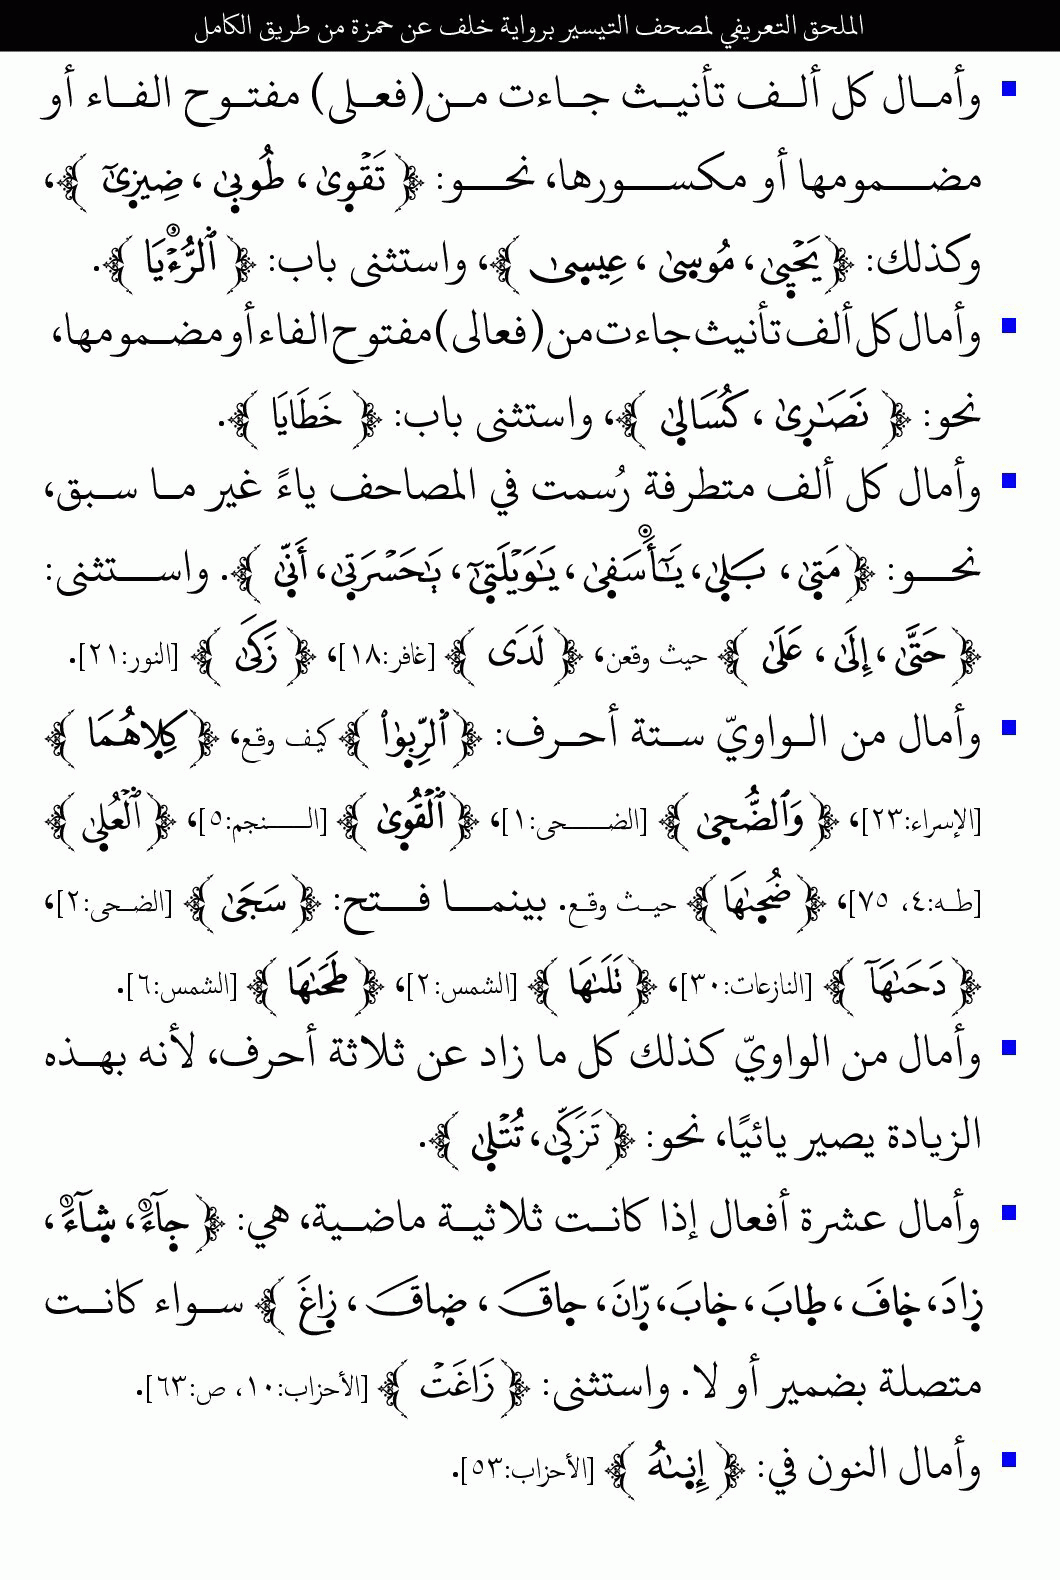 الملحق التعريفي لمصحف التيسير برواية خلف عن حمزة من طريق الكامل
▪ وأمال كل ألف تأنيث جاءت من (فعلى) مفتوح الفاء أو
مضمومها أو مكسورها، نحو: ﴿ تَقْوىٰ ، طُوبىٰ ، ضِيزىٰٓ ﴾،
وكذلك: ﴿ يَحْيىٰ ، مُوسىٰ ، عِيسىٰ ﴾، واستثنى باب: ﴿ ٱلرُّءْيَا ﴾.
▪ وأمال كل ألف تأنيث جاءت من (فعالى) مفتوح الفاء أو مضمومها،
نحو: ﴿ نَصَٰرىٰ ، كُسَالىٰ ﴾، واستثنى باب: ﴿ خَطَايَا ﴾.
▪ وأمال كل ألف متطرفة رُسمت في المصاحف ياءً غير ما سبق،
نحو: ﴿ مَتىٰ ، بَلىٰ ، يَٰٓأَسَفىٰ ، يَٰوَيْلَتىٰٓ ، يَٰحَسْرَتىٰ ، أَنّىٰ ﴾. واستثنى:
﴿ حَتَّىٰ ، إِلَىٰ ، عَلَىٰ ﴾ حيث وقعن، ﴿ لَدَى ﴾ [غافر:١٨]، ﴿ زَكَىٰ ﴾ [النور:٢١].
▪ وأمال من الواويّ ستة أحرف: ﴿ ٱلرِّبوٰا۟ ﴾ كيف وقع، ﴿ كِلاهُمَا ﴾
[الإسراء:٢٣]، ﴿ وَٱلضُّحىٰ ﴾ [الضحى:١]، ﴿ ٱلْقُوىٰ ﴾ [النجم:٥]، ﴿ ٱلْعُلىٰ ﴾
[طه:٤، ٧٥]، ﴿ ضُحىٰهَا ﴾ حيث وقع. بينما فتح: ﴿ سَجَىٰ ﴾ [الضحى:٢]،
﴿ دَحَىٰهَآ ﴾ [النازعات:٣٠]، ﴿ تَلَىٰهَا ﴾ [الشمس:٢]، ﴿ طَحَىٰهَا ﴾ [الشمس:٦].
▪ وأمال من الواويّ كذلك كل ما زاد عن ثلاثة أحرف، لأنه بهذه
الزيادة يصير يائيًا، نحو: ﴿ تَزَكّىٰ ، تُتْلىٰ ﴾.
▪ وأمال عشرة أفعال إذا كانت ثلاثية ماضية، هي: ﴿ جآءَ ، شآءَ ،
زادَ ، خافَ ، طابَ ، خابَ ، رّانَ ، حاقَ ، ضاقَ ، زاغَ ﴾ سواء كانت
متصلة بضمير أو لا. واستثنى: ﴿ زَاغَتْ ﴾ [الأحزاب:١٠، ص:٦٣].
▪ وأمال النون في: ﴿ إِنىٰهُ ﴾ [الأحزاب:٥٣].